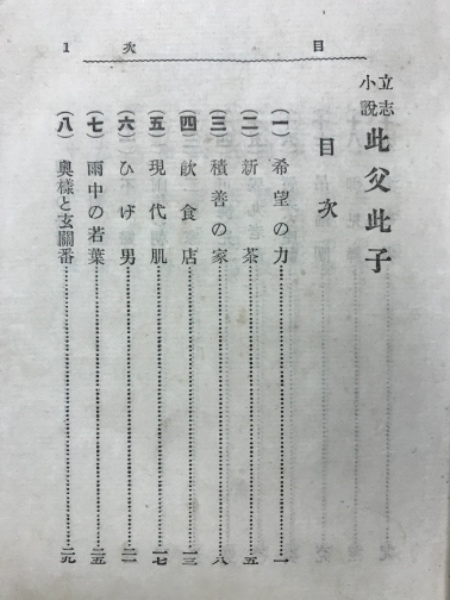 目次 1
立志小説 此父此子
目次
(一) 希望の力……一
(二) 新茶……五
(三) 積善の家……八
(四) 飲食店……一三
(五) 現代肌……一七
(六) ひげ男……二一
(七) 雨中の若葉……二五
(八) 奥様と玄關番……二九